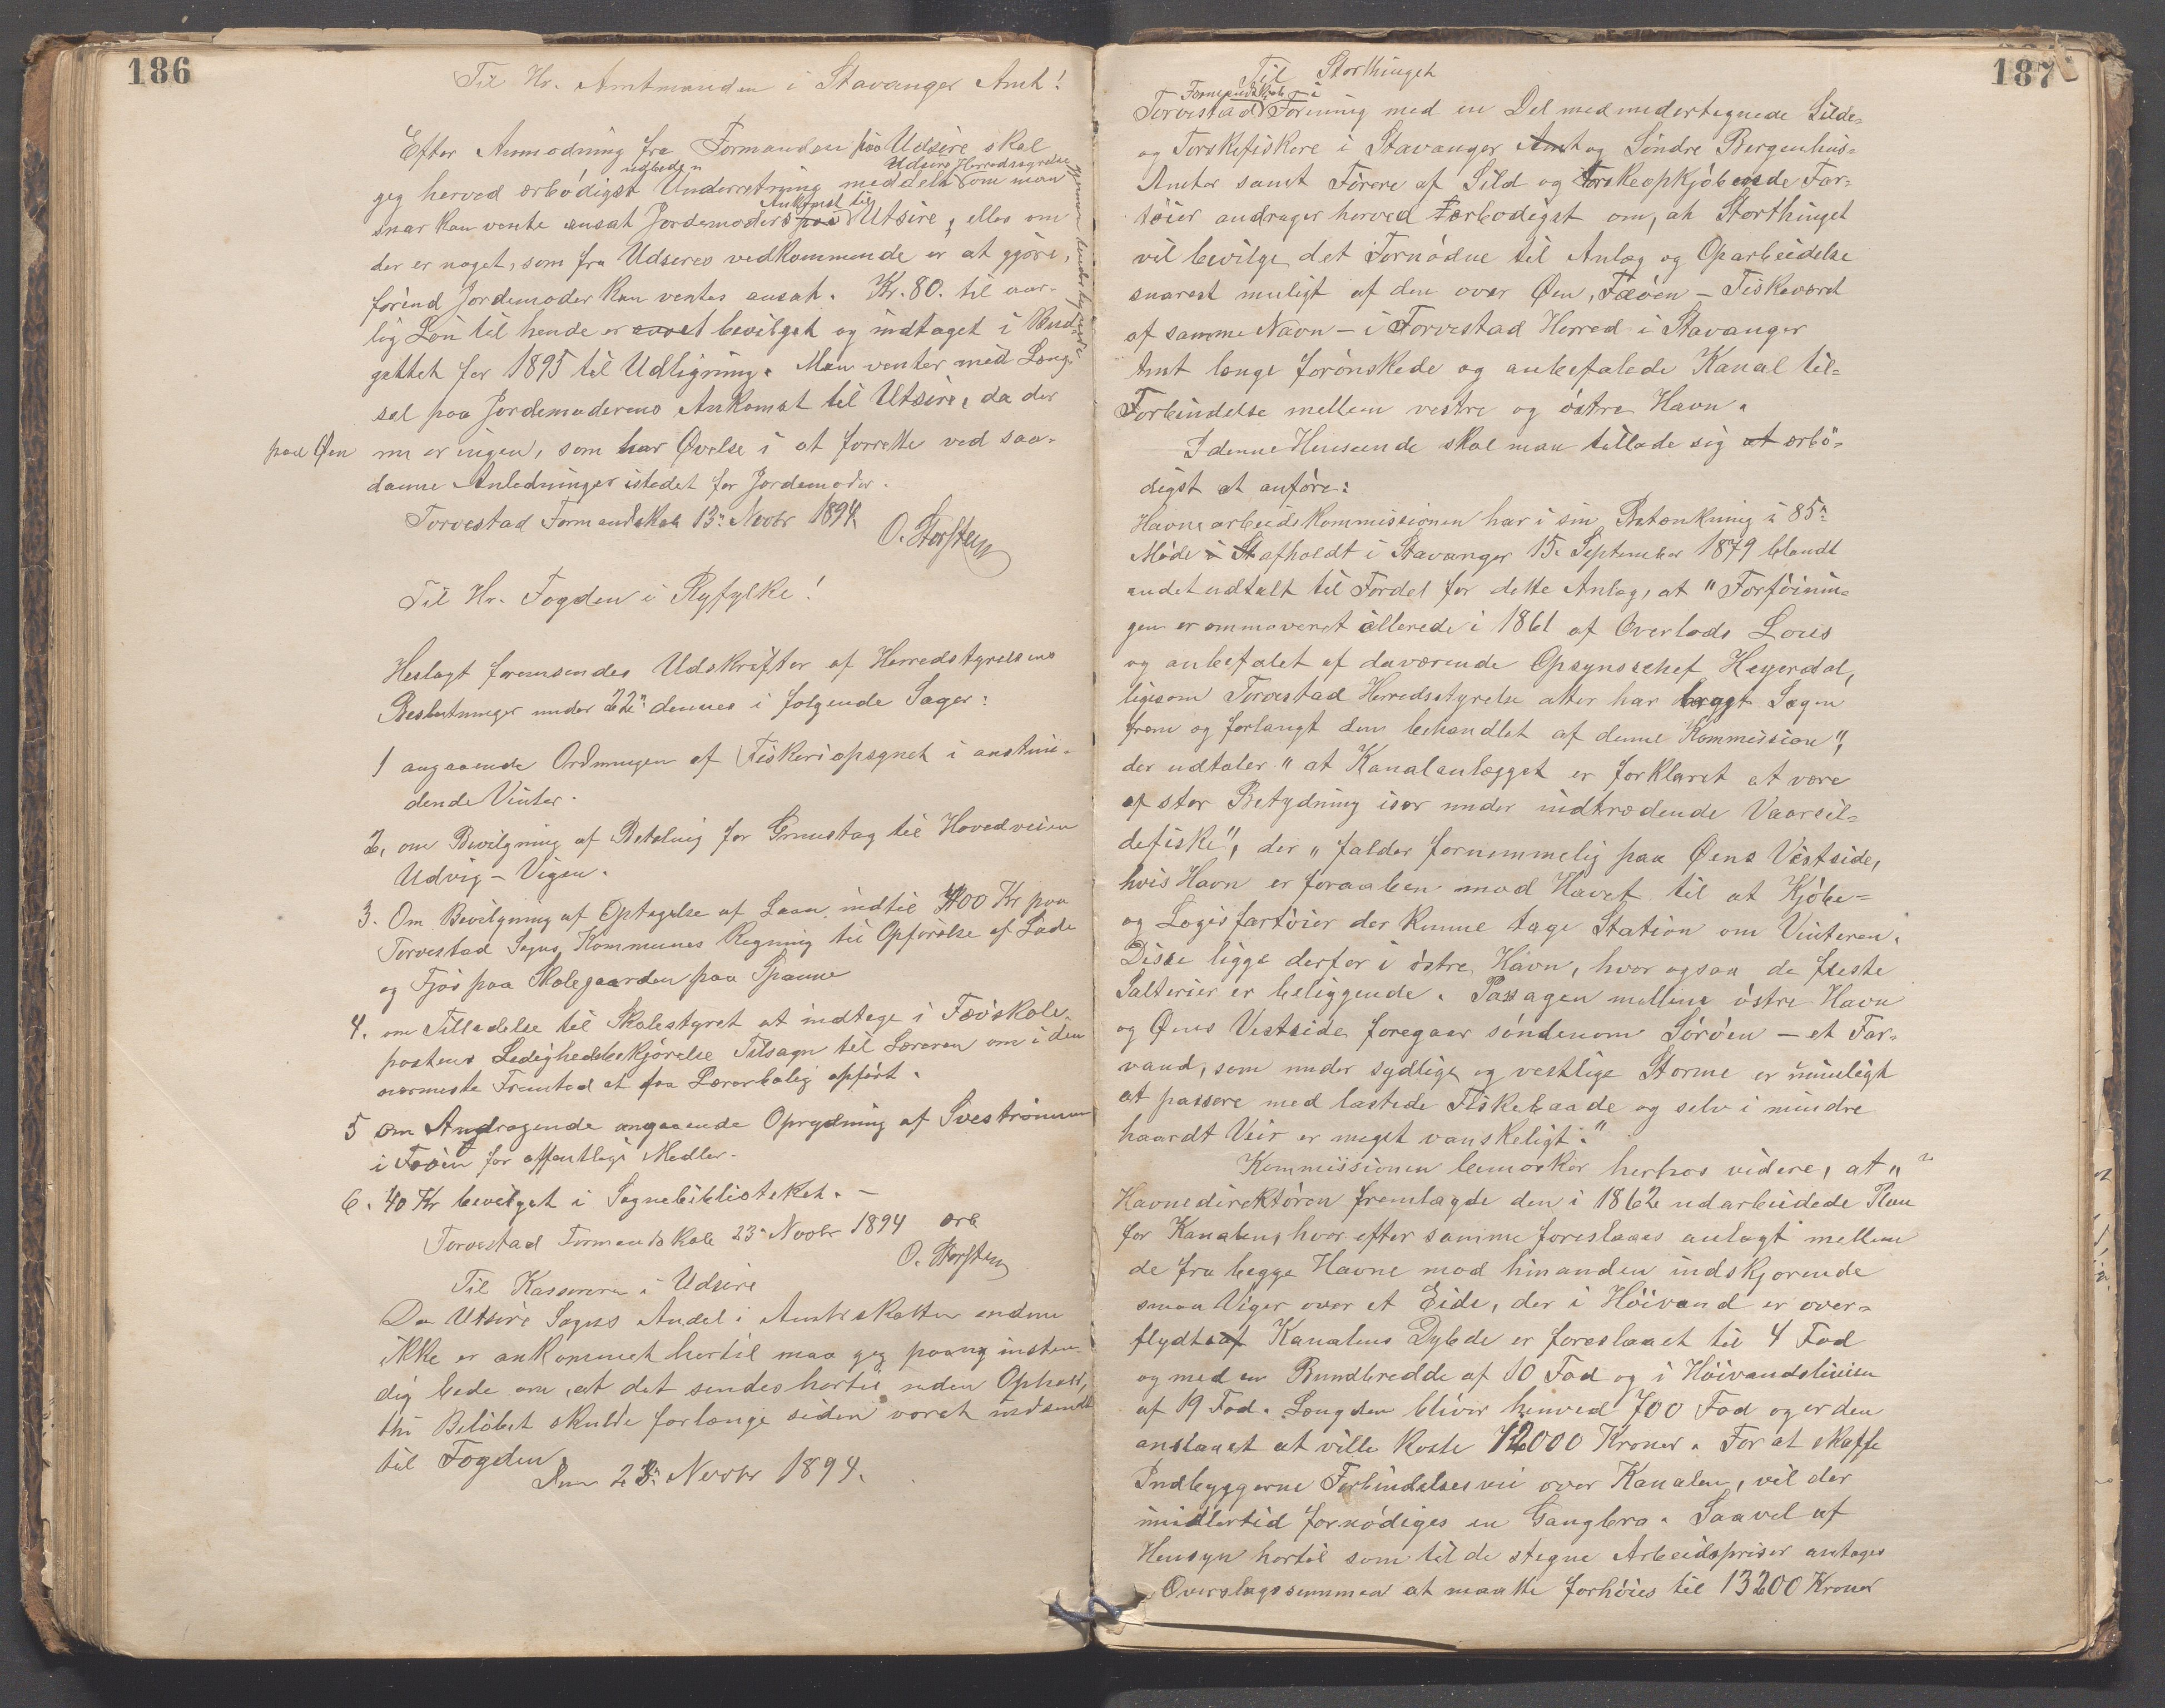 186
Til Hr. Amtmanden i Stavanger Amt!
Efter Anmodning fra Formanden paa Udsire skal
udbede Udsire Herredsstyrelse
jeg herved ærbødigst Underretning meddelt om man
Ankomst til
snar kan vente ansat Jordemoders paa Utsire, eller om
der er noget, som fra Udsires vedkommende er at gjøre,
førend Jordemoder kan ventes ansat. Kr. 80. til aar-
lig Løn til hende er bevilget og indtaget i Bud-
gettet for 1895 til Udligning. Man venter med Læng-
sel paa Jordemoderens Ankomst til Utsire, da der
paa Øen nu er ingen, som har Øvelse i at forrette ved saa-
danne Anledninger istedet for Jordemoder.
Torvestad Formandskab 13de Novbr 1894.
O. Storstein
Til Hr. Fogden i Ryfylke!
Heslagt fremsendes Udskrifter af Herredstyrelsens
Beslutninger under 22de dennes i følgende Sager:
1 angaaende Ordningen af Fiskeriopsynet i anstun-
dende Vinter.
2, om Bevilgning af Betaling for Grustag til Hovedveien
Udvig - Vigen.
3. Om Bevilgning af Optagelse af Laan indtil 400 Kr paa
Torvestad Sogns Kommunes Regning til Opførelse af Lade
og Fjøs paa Skolegaarden paa Spanne
4. om Tilladelse til Skolestyret at indtage i Føøskole-
postens Ledighedsbekjørelse Tilsagn til Læreren om i den
nærmeste Fremtid at faa Lærerbolig opført.
5 om Andragende angaaende Oprydning af Svestrømmen
i Føøen for offentlige Medler.
6. 40 Kr bevilget i Sognebiblioteket. -
Torvestad Formandskab 23de Novbr 1894 ærb
O. Storstein
Til Kassereren i Udsire
Da Utsire Sogns Andel i Amtsskatten endnu
ikke er ankommet hertil maa jeg paany insten-
dig bede om, at det sendes hertil uden Ophold,
thi Beløbet skulde forlænge siden været indsendt
til Fogden.
Den 23de Novbr 1894.
187
Til Storthinget
Formandskab i
Torvestad Forening med en Del medundertegnede Silde-
og Torskefiskere i Stavanger Amt og Søndre Bergenhus-
Amter samt Førere af Sild og Torskeopkjøbende Far-
tøier andrager herved ærbødigst om, at Storthinget
vil bevilge det Fornødne til Anlæg og Oparbeidelse
snarest muligt af den over Øen, Føøen - Fiskeværet
af samme Navn - i Torvestad Herred i Stavanger
Amt længe forønskede og anbefalede Kanal til-
Forbindelse mellem vestre og østre Havn.
I denne Henseende skal man tillade sig at ærbø-
digst at anføre:
Havnearbeidskommissionen har i sin Betænkning i 85de
Møde i St afholdt i Stavanger 15. September 1879 blandt
andet udtalt til Fordel for dette Anlæg, at "Forføinin-
gen er ommoveret allerede i 1861 af Overlods Lous
og anbefalet af daværende Opsynschef Heyerdal,
ligesom Torvestad Herredsstyrelse atter har bragt Sagen
frem og forlangt den behandlet af denne Kommission",
der udtaler "at Kanalanlægget er forklaret at være
af stor Betydning især under indtrædende Vaarsil-
defiske", der "falder fornemmelig paa Øens Vestside,
hvis Havn er foraaben mod Havet til at Kjøbe-
og Logisfartøier der kunne tage Station om Vinteren.
Disse ligge derfor i østre Havn, hvor ogsaa de fleste
Salterier er beliggende. Passagen mellem østre Havn
og Øens Vestside foregaar søndenom Sørøen - et Far-
vand, som under sydlige og vestlige Storme er umuligt
at passere med lastede Fiskebaade og selv i mindre
haardt Veir er meget vanskeligt."
Kommissionen bemærker herhos videre, at "
Havnedirektøren fremlagde den i 1862 udarbeidede Plan
for Kanalen, hvorefter samme foreslaaes anlagt mellem
de fra begge Havne mod hinanden indskjærende
smaa Viger over et Eide, der i Høivand er over-
flydt af Kanalens Dybde er foreslaaet til 4 Fod
og med en Bundbredde af 10 Fod og i Høivandslinien
af 19 Fod. Længden bliver henved 700 Fod og er den
anslaaet at ville koste 12000 Kroner. For at skaffe
Indbyggerne Forbindelsesvei over Kanalen, vil der
imidlertid fornødiges en Gangbro. Saavel af
Hensyn hertil som til de stegne Arbeidspriser antages
Overslagssummen at maatte forhøies til 13200 Kroner